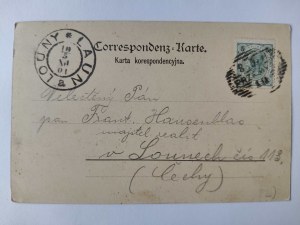 Correspondenz-Karte.
Karta korespondencyjna.
LOUNY LAUN
Velectěný Pán
pan Frant. Hansenblas
majitel realit
v Lounech čís 113
(Čechy)